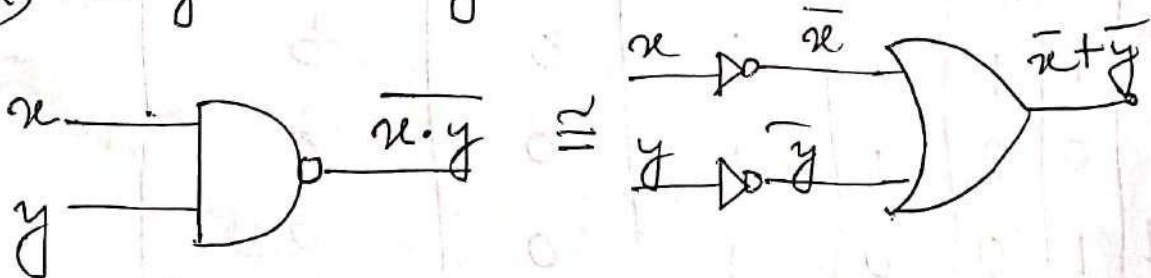 x
y
$\overline{x \cdot y}$
≅
x
$\overline{x}$
y
$\overline{y}$
$\overline{x} + \overline{y}$